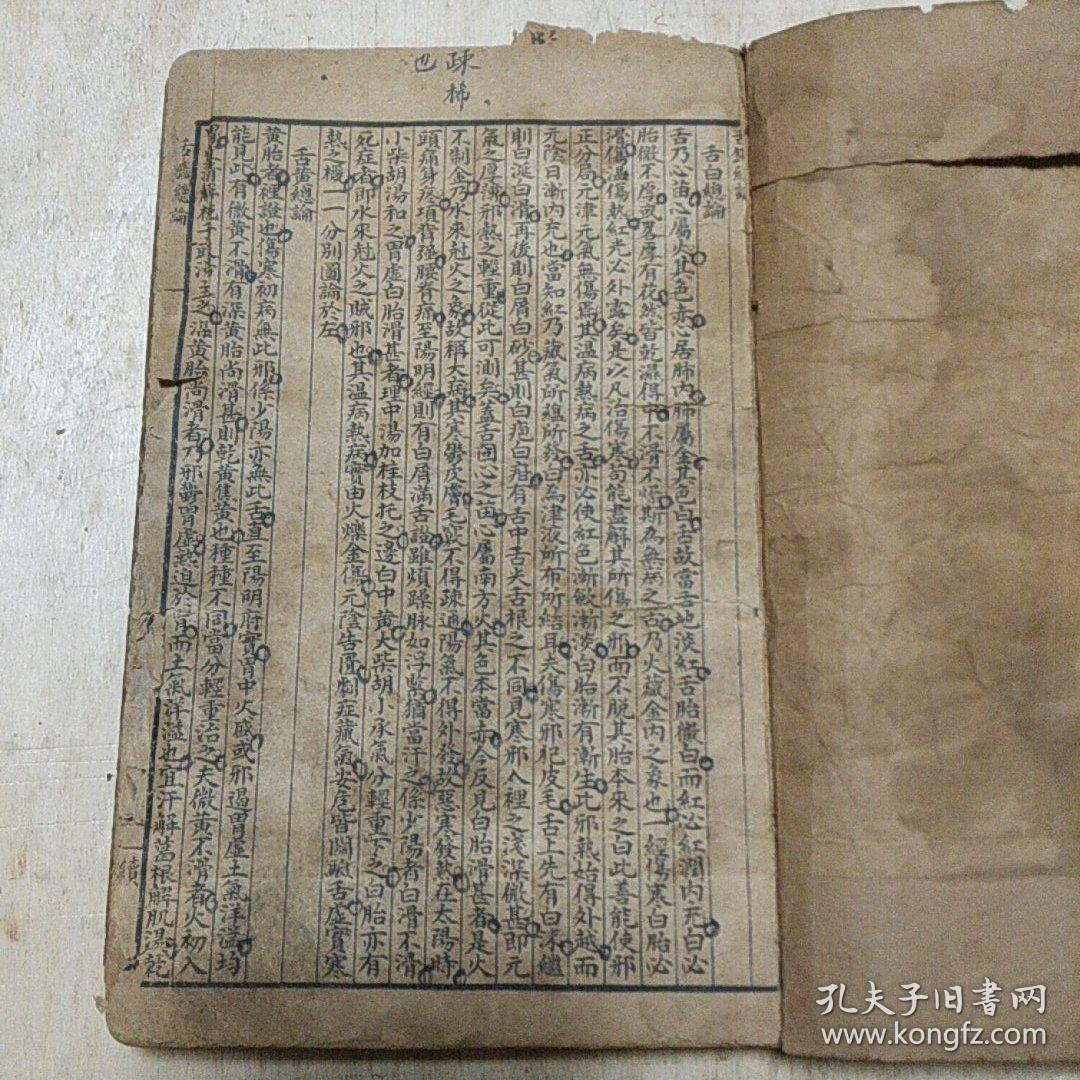 疎稀
也
舌白總論
舌乃心苗心屬火其色赤心居肺內肺屬金其色白舌故當舌地淡紅舌胎微白而紅必紅潤內充白必
胎微不厚或畧厚有花然皆乾濕得中不滑不燥斯為無病之舌乃火藏金內之象也一經傷寒白胎必
滑傷溫傷熱紅光必外露矣是以凡治傷寒苟能盡解其所傷之邪而不脫其胎本來之白此善能使邪
正分居元津元氣無傷焉其溫病熱病之舌亦必使紅色漸斂漸淡白胎漸有漸生此邪熱始得外越而
元陰日漸內充也當知紅乃藏氣所蘊所發白為津液所布所結耳夫傷寒邪犯皮毛舌上先有白沫繼
則白涎白滑再後則白屑白砂甚則白疱白疳有舌中舌尖舌根之不同見寒邪入裡之淺深微甚即元
氣之厚薄邪熱之輕重從此可測矣蓋舌固心之苗心屬南方火其色本當赤今反見白胎滑甚者是火
不制金乃水來尅火之象故稱大病其寒鬱皮膚毛竅不得疎通陽氣不得外發故惡寒發熱在太陽時
頭痛身疼項背强腰脊痛至陽明經則有白屑滿舌證雖煩躁脉如浮緊猶當汗之係少陽者白滑不滑
小柴胡湯和之胃虛白胎滑甚者理中湯加桂枝托之邊白中黄大柴胡小承氣分輕重下之白胎亦有
死症者即水來尅火之賊邪也其溫病熱病實由火爍金傷元陰告匱劇症藏氣安危皆關驗舌虛實寒
熱之機一一分別圖論於左
舌黄總論
黄胎者裡證也傷寒初病無此邪係少陽亦無此舌直至陽明府實胃中火盛或邪遏胃虛土氣洋溢均
能見此有微黄不滑有深黄胎尚滑甚則乾黄焦黄也種種不同當分輕重治之夫微黄不滑者火初入
胃 清解梔子豉湯主之深黄胎尚滑者乃邪鬱胃虛熱迫於胃而土氣洋溢也宜汗解葛根解肌湯乾
舌鑑總論
二
續
孔夫子旧書网
www.kongfz.com